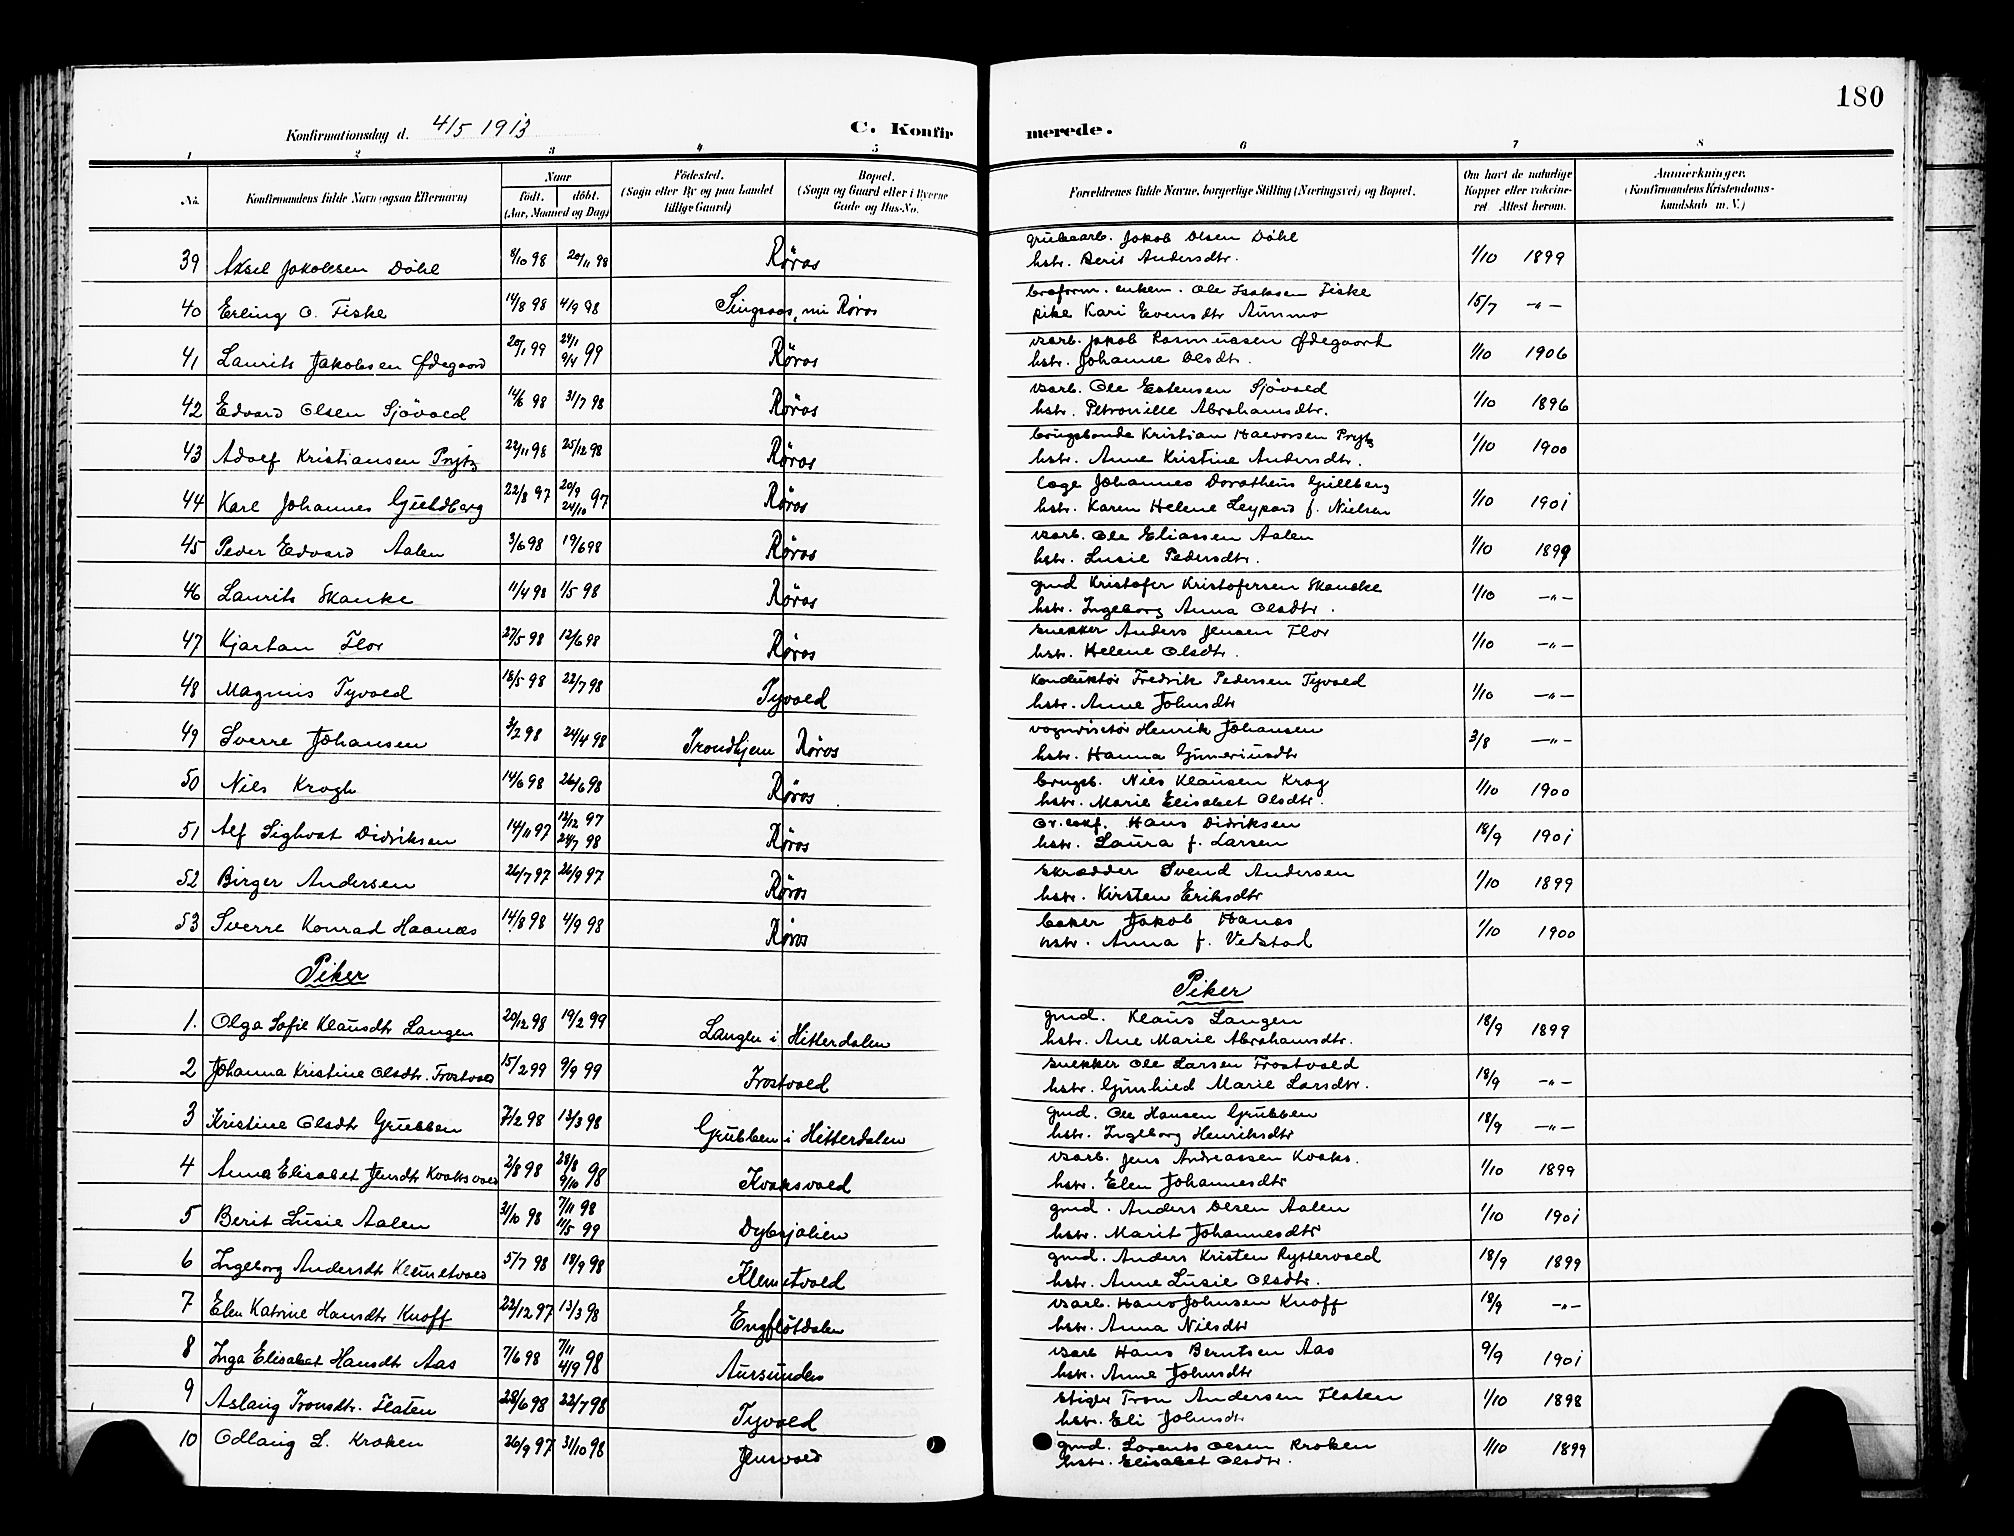 180
Konfirmationsdag d. 4/5 1913
C. Konfirmerede.
1 2 3 4 5 6 7 8
No. Konfirmandens fulde Navn (ogsaa Efternavn) Naar födt. döbt. (Aar, Maaned og Dag) Födested. (Sogn eller By og paa Landet tillige Gaard) Bopæl. (Sogn og Gaard eller i Byerne Gade og Hus-No. Forældrenes fulde Navne, borgerlige Stilling (Næringsvei) og Bopæl. Om havt de naturlige Kopper eller vaksineret Attest herom. Anmærkninger. (Konfirmandens Kristendomskundskab m. V.)
39 Aksel Jakobsen Döhl 8/10 98 20/11 98 Røros grubearb. Jakob Olsen Döhl 1/10 1899
hstr. Berit Andersdtr.
40 Erling O. Fiske 14/8 98 4/9 98 Singsaas, nu Røros enkem. Ole Isaksen Fiske 15/7 -"-
pike Kari Evensdtr Aunmo
41 Laurits Jakobsen Ødegaard 20/1 99 24/1 9/4 99 Røros varb. Jakob Rasmussen Ødegaard 1/10 1906
hstr. Johanne Olsdtr.
42 Edvard Olsen Sjövold 14/6 98 31/7 98 Røros varb. Ole Estensen Sjövold 1/10 1896
hstr. Petronille Abrahamsdtr.
43 Adolf Kristiansen Prytz 22/11 98 25/12 98 Røros brugsbonde Kristian Halvorsen Prytz 1/10 1900
hstr. Anne Kristine Andersdtr.
44 Karl Johannes Guldberg 22/8 97 20/9 24/10 97 Røros læge Johannes Dorotheus Gullberg 1/10 1901
hstr. Karen Helene f. Nielsen
45 Peder Edvard Aalen 3/6 98 19/6 98 Røros varb. Ole Eliassen Aalen 1/10 1899
hstr. Lusie Pedersdtr.
46 Laurits Skanke 11/4 98 1/5 98 Røros gmd Kristofer Kristofersen Skancke 1/10 -"-
hstr. Ingeborg Anna Olsdtr.
47 Kjartan Flor 27/5 98 12/6 98 Røros snekker Anders Jensen Flor 1/10 -"-
hstr. Helene Olsdtr.
48 Magnus Tyvold 18/5 98 22/7 98 Tyvold Konduktør Fredrik Pedersen Tyvold 1/10 -"-
hstr. Anne Johnsdtr
49 Sverre Johansen 3/2 98 24/4 98 Trondhjem Røros vognvisitør Henrik Johansen 3/8 -"-
hstr. Hanna Guneriusdtr
50 Nils Krogh 14/6 98 26/6 98 Røros brugsb. Nils Klausen Krog 1/10 1900
hstr. Marie Elisabet Olsdtr.
51 Alf Sighvat Didriksen 14/11 97 12/12 97 24/7 98 Røros Hans Didriksen 18/9 1901
hstr. Laura f. Larsen
52 Birger Andersen 26/7 97 26/9 97 Røros skrædder Svend Andersen 1/10 1899
hstr. Kirsten Eriksdtr
53 Sverre Konrad Haanæs 14/8 98 4/9 98 Røros baker Jakob Hanæs 1/10 1900
hstr. Anna f. Vedstad
Piker Piker
1. Olga Sofie Klausdtr Langen 20/12 98 19/2 99 Langen i Hitterdalen gmd. Klaus Langen 18/9 1899
hstr. Ane Marie Abrahamsdtr.
2 Johanna Kristine Olsdtr. Frostvold 15/2 99 9/9 99 Frostvold snekker Ole Larsen Frostvold 18/9 -"-
hstr. Gunhild Marie Larsdtr.
3 Kristine Olsdtr Grubben 7/2 98 13/3 98 Grubben i Hitterdalen gmd. Ole Hansen Grubben 18/9 -"-
hstr. Ingeborg Henriksdtr
4 Anna Elisabet Jensdtr Kvaksvold 2/8 98 28/8 9/10 98 Kvaksvold varb. Jens Andreassen Kvaks. 1/10 1899
hstr. Elen Johannesdtr
5 Berit Lusie Aalen 31/10 98 7/11 98 11/5 99 Dybsjølien gmd. Anders Olsen Aalen 1/10 1901
hstr. Marit Johannesdtr
6 Ingeborg Andersdtr Klemetvold 5/7 98 18/9 98 Klemetvold gmd. Anders Kristen Ryttervold 18/9 1899
hstr. Anne Lusie Olsdtr.
7 Elen Katrine Hansdtr Knoff 22/12 97 13/3 98 Engflötdalen varb. Hans Johnsen Knoff 18/9 -"-
hstr. Anna Nilsdtr
8 Inga Elisabet Hansdtr Aas 7/6 98 7/11 4/9 98 Aursunden varb Hans Berntsen Aas 9/9 1901
hstr. Anne Johnsdtr
9 Aslaug Tronsdtr. Flaten 28/6 98 22/7 98 Tyvold stiger Tron Andersen Flaten 1/10 1898
hstr. Eli Johnsdtr
10 Odlaug L. Kroken 26/9 97 31/10 98 Jensvold gmd. Lorents Olsen Kroken 1/10 1899
hstr. Elisabet Olsdtr.